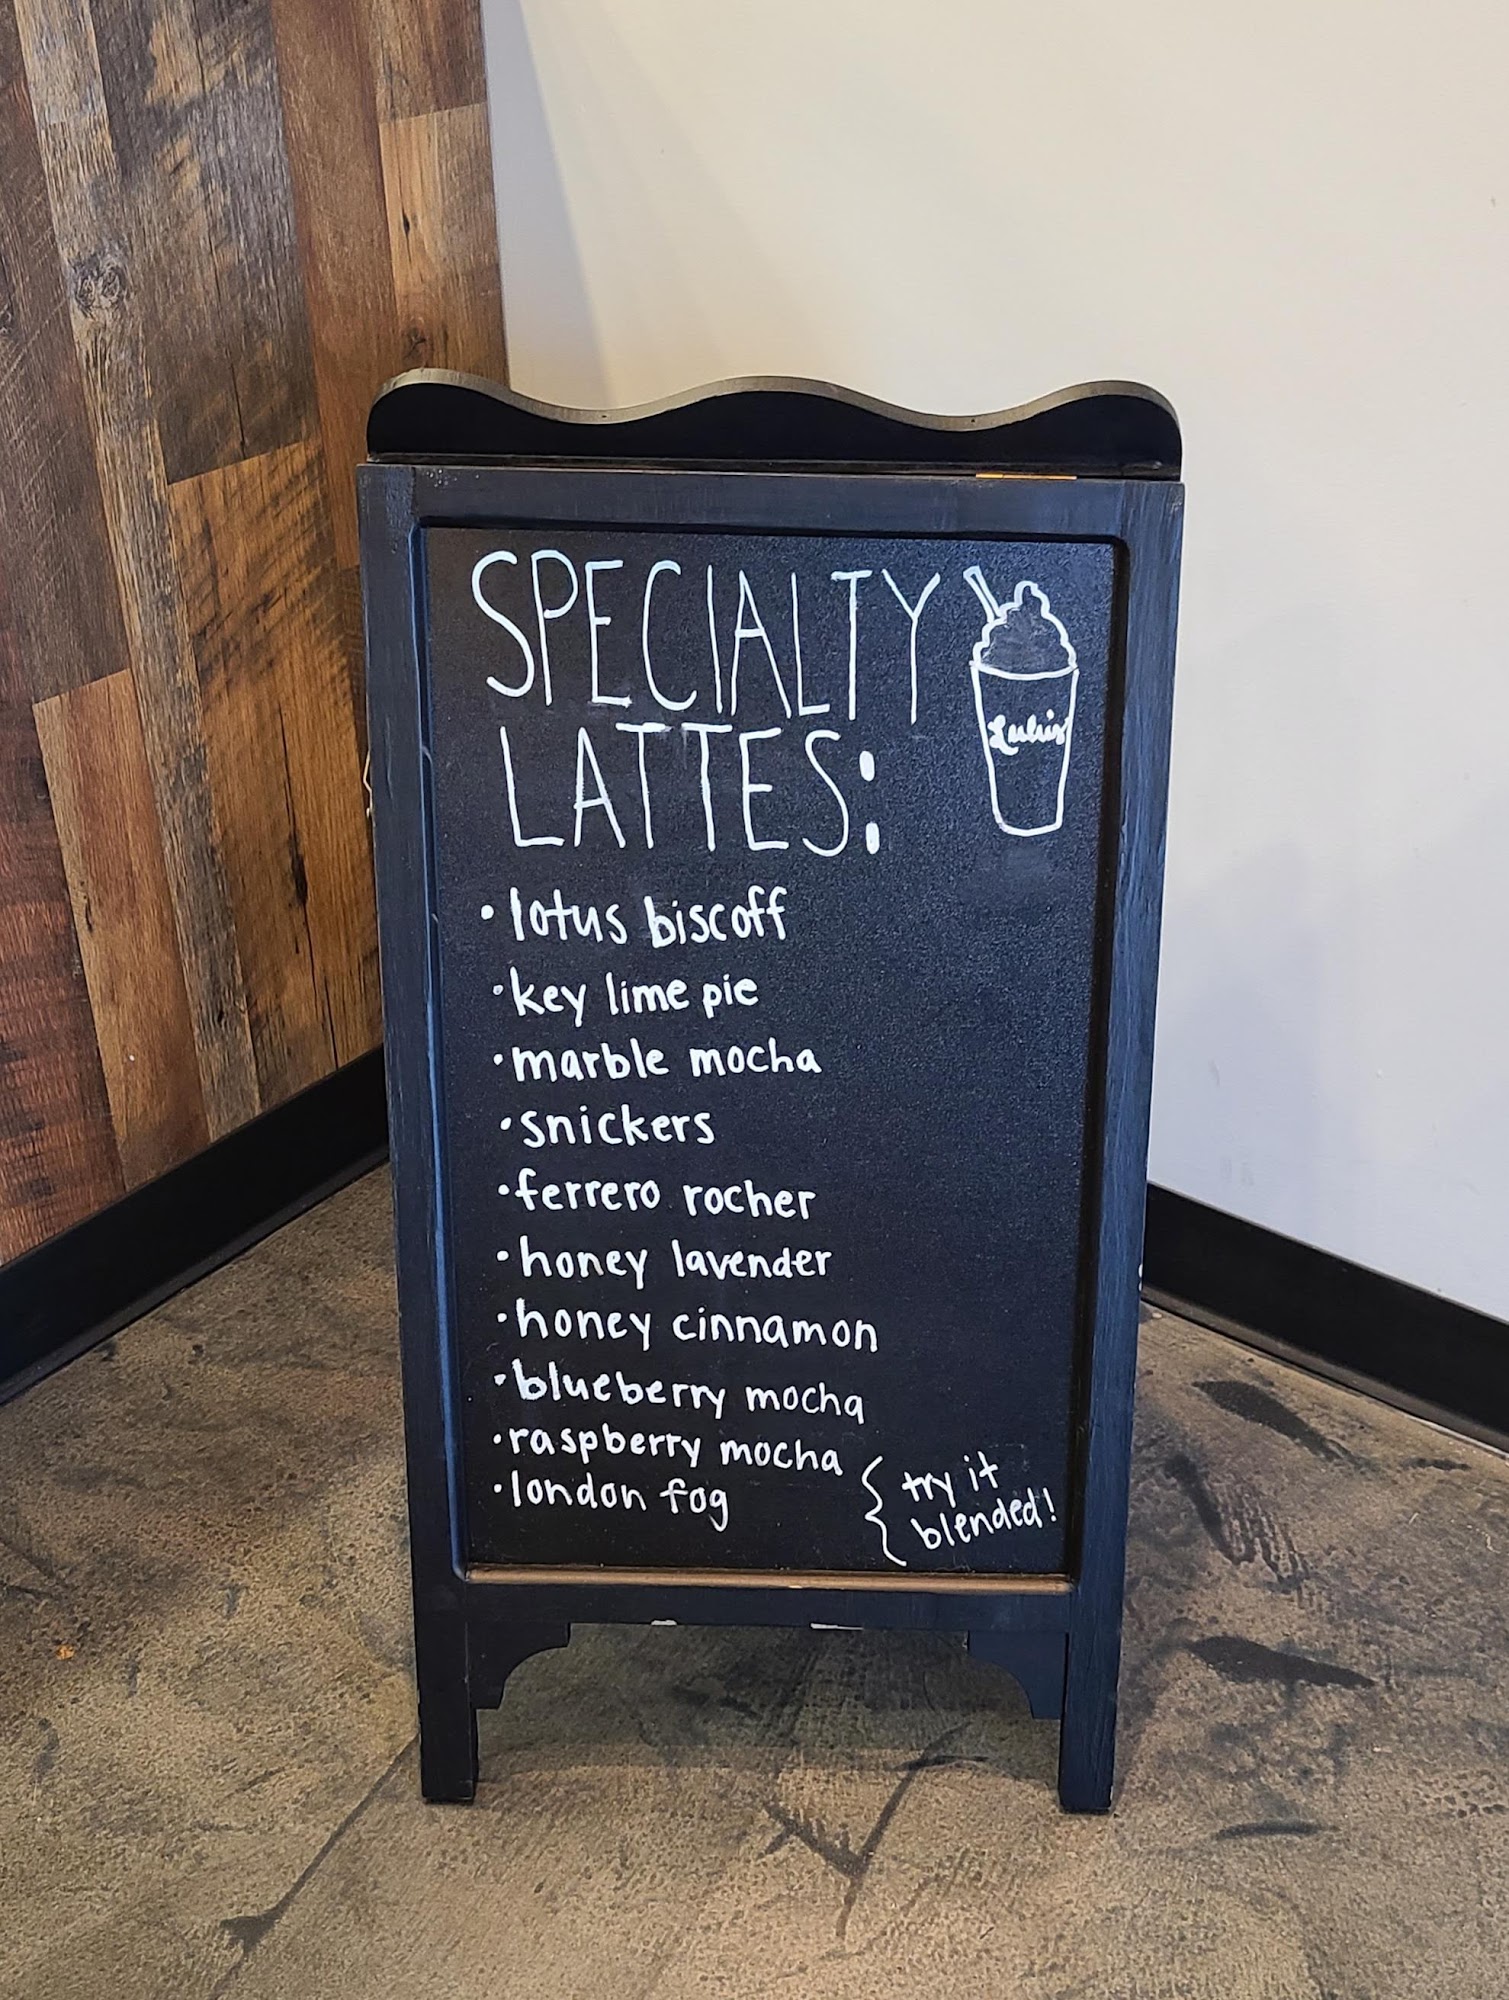 SPECIALTY
LATTES:
Lulu's
• lotus biscoff
• key lime pie
• marble mocha
• snickers
• ferrero rocher
• honey lavender
• honey cinnamon
• blueberry mocha
• raspberry mocha
• london fog
{ try it
blended!